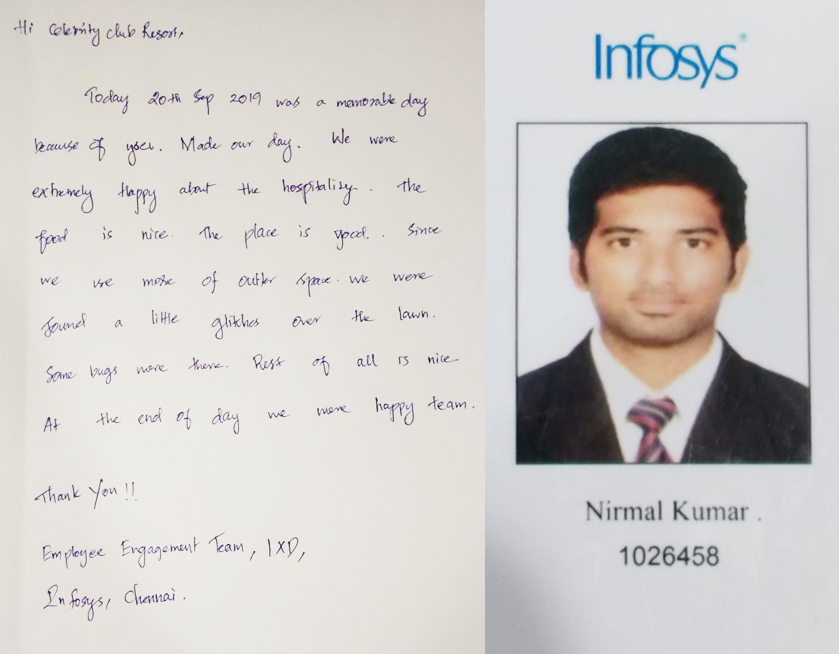 Hi Celebrity club Resort,
Today 20th Sep 2019 was a memorable day
because of you. Made our day. We were
extremely Happy about the hospitality. The
food is nice. The place is good. Since
we use more of outler space. we were
found a little glitches over the lawn.
Some bugs were there. Rest of all is nice
At the end of day we were happy team.
Thank You !!
Employee Engagement Team, IXD,
Infosys, Chennai.
Infosys®
Nirmal Kumar .
1026458